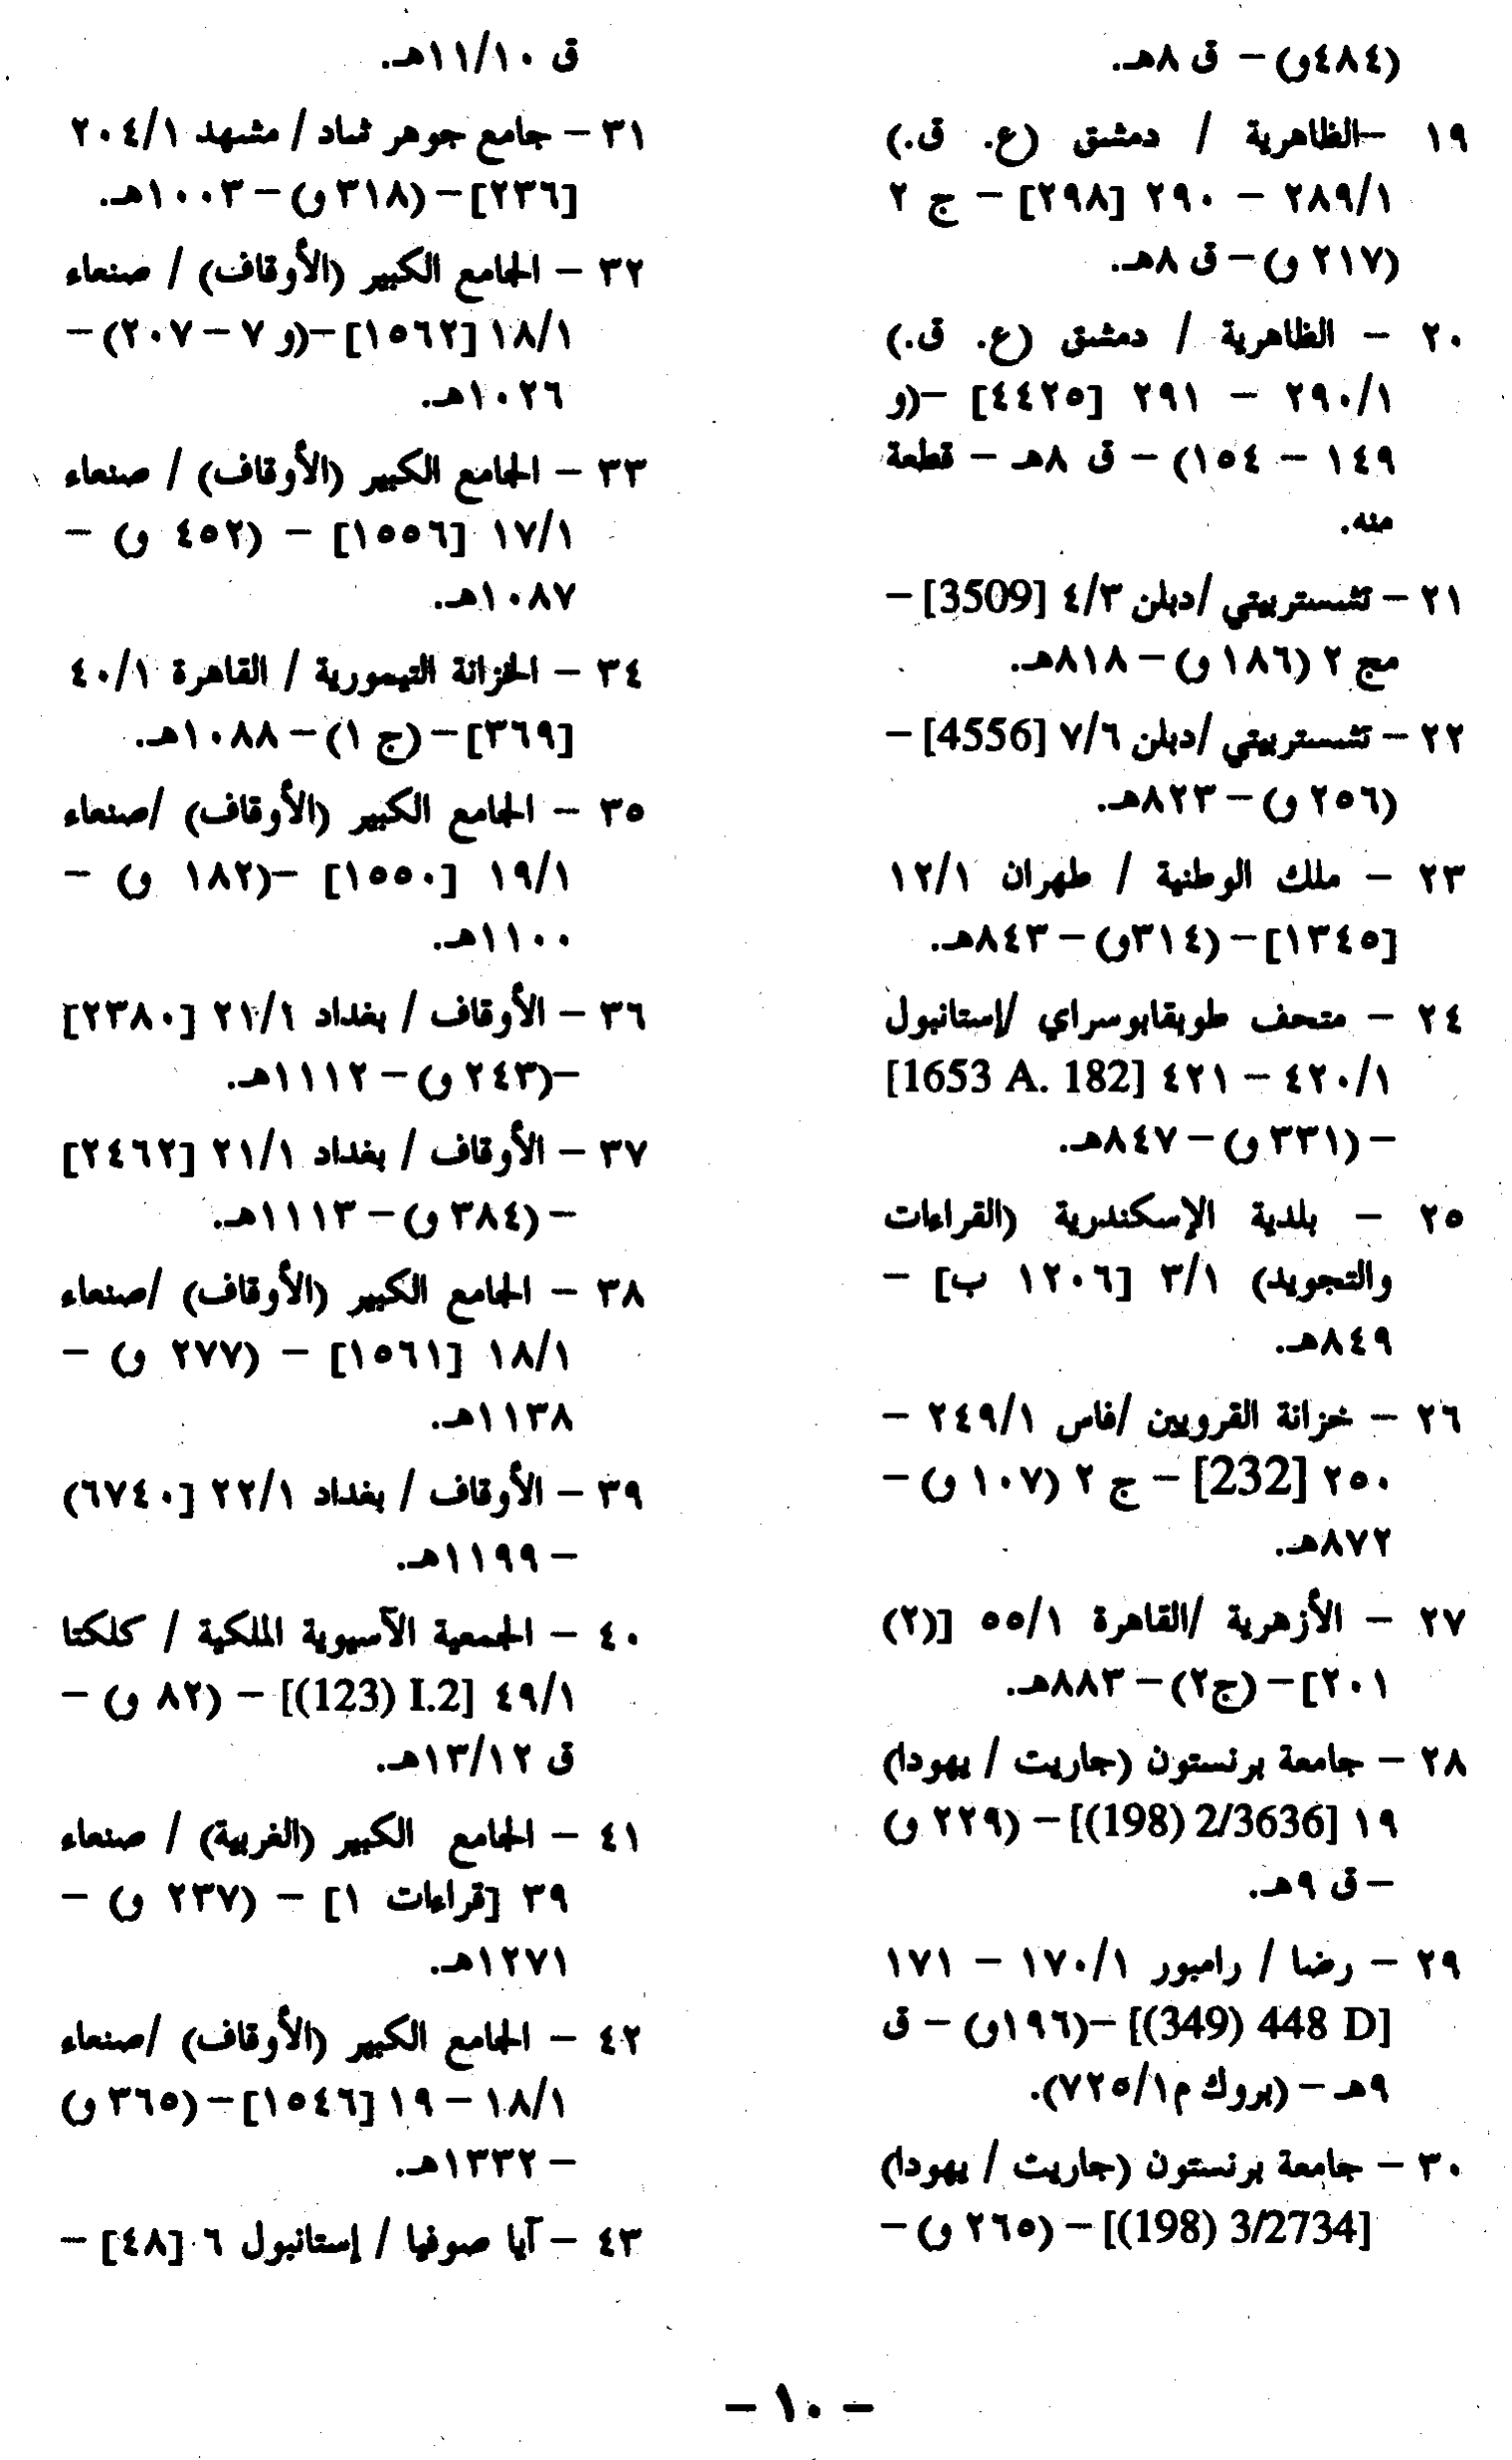 (٤٨٤و) – ق ٨هـ.
١٩ –الظاهرية / دمشق (ع. ق.)
٢٨٩/١ – ٢٩٠ [٢٩٨] – ج ٢
(٢١٧ و) – ق ٨هـ.
٢٠ – الظاهرية / دمشق (ع. ق.)
٢٩٠/١ – ٢٩١ [٤٤٢٥] –(و
١٤٩ – ١٥٤) – ق ٨هـ – قطعة
منه.
٢١ – تشستربيتي /دبلن ٤/٣ [3509] –
مج ٢ (١٨٦ و) – ٨١٨هـ.
٢٢ – تشستربيتي /دبلن ٧/٦ [4556] –
(٢٥٦ و) – ٨٢٣هـ.
٢٣ – ملك الوطنية / طهران ١٢/١
[١٣٤٥] – (٣١٤و) – ٨٤٣هـ.
٢٤ – متحف طوبقابوسراي /إستانبول
٤٢٠/١ – ٤٢١ [1653 A. 182]
– (٣٣١ و) – ٨٤٧هـ.
٢٥ – بلدية الإسكندرية (القراءات
والتجويد) ٣/١ [١٢٠٦ ب] –
٨٤٩هـ.
٢٦ – خزانة القرويين /فاس ٢٤٩/١ –
٢٥٠ [232] – ج ٢ (١٠٧ و) –
٨٧٢هـ.
٢٧ – الأزهرية /القاهرة ٥٥/١ [(٢)
٢٠١] – (ج٢) – ٨٨٣هـ.
٢٨ – جامعة برنستون (جاريت / يهودا)
١٩ [2/3636 (198)] – (٢٢٩ و)
– ق ٩هـ.
٢٩ – رضا / رامبور ١٧٠/١ – ١٧١
[448 D (349)] –(١٩٦و) – ق
٩هـ – (بروك م٧٢٥/١).
٣٠ – جامعة برنستون (جاريت / يهودا)
[3/2734 (198)] – (٢٦٥ و) –
ق ١١/١٠هـ.
٣١ – جامع جوهر شاد / مشهد ٢٠٤/١
[٢٣٦] – (٣١٨ و) – ١٠٠٣هـ.
٣٢ – الجامع الكبير (الأوقاف) / صنعاء
١٨/١ [١٥٦٢] –(و ٧ – ٢٠٧) –
١٠٢٦هـ.
٣٣ – الجامع الكبير (الأوقاف) / صنعاء
١٧/١ [١٥٥٦] – (٤٥٢ و) –
١٠٨٧هـ.
٣٤ – الخزانة التيمورية / القاهرة ٤٠/١
[٣٦٩] – (ج ١) – ١٠٨٨هـ.
٣٥ – الجامع الكبير (الأوقاف) /صنعاء
١٩/١ [١٥٥٠] –(١٨٢ و) –
١١٠٠هـ.
٣٦ – الأوقاف / بغداد ٢١/١ [٢٣٨٠]
–(٢٤٣ و) – ١١١٢هـ.
٣٧ – الأوقاف / بغداد ٢١/١ [٢٤٦٢]
– (٣٨٤ و) – ١١١٣هـ.
٣٨ – الجامع الكبير (الأوقاف) /صنعاء
١٨/١ [١٥٦١] – (٢٧٧ و) –
١١٣٨هـ.
٣٩ – الأوقاف / بغداد ٢٢/١ [٦٧٤٠)
– ١١٩٩هـ.
٤٠ – الجمعية الآسيوية الملكية / كلكتا
٤٩/١ [I.2 (123)] – (٨٢ و) –
ق ١٣/١٢هـ.
٤١ – الجامع الكبير (الغربية) / صنعاء
٣٩ [قراءات ١] – (٢٣٧ و) –
١٢٧١هـ.
٤٢ – الجامع الكبير (الأوقاف) /صنعاء
١٨/١ – ١٩ [١٥٤٦] – (٣٦٥ و)
– ١٣٣٢هـ.
٤٣ – آيا صوفيا / إستانبول ٦ [٤٨] –
– ١٠ –